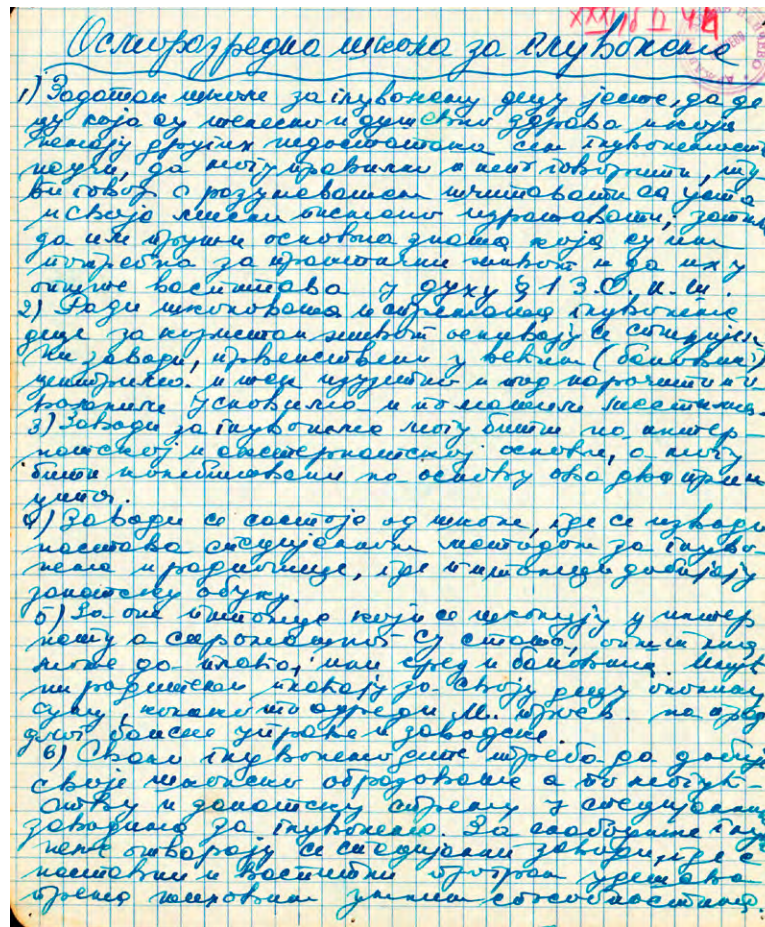 XXXI/б
Осморазредна школа за глувонеме
1) Задатак школе за глувонему децу јесте, да де
цу која су телесно и душевно здрава и која
немају других недостатака сем глувонемости
научи, да могу правилно и говорити, ту
ђи говор с разумевањем ишчитавати са уста
и своје мисли писмено изражавати; затим
да им пружи основна знања која су им
потребна за практични живот и да их у
опште васпитава у духу § 1 З.О.н.ш.
2) Ради школовања и спремања глувонеме
деце за живот оснивају се специјал
ни заводи, првенствено у већим (бановин.)
центрима. и под нарочитим
условима и по мањим местима.
3) Заводи за глувонеме могу бити на интер-
натској и екстернатској основи, а могу
бити комбиновани на основу ова два прин
ципа.
4) Заводи се састоје од школе, где се изводи
настава специјалном методом за глуво-
неме и радионице, где питомци добијају
занатску обуку.
5) За оне питомце који се школују у интер
нату а сиромашног су стања, општина
може да плаћа, или срез и бановина. Имућ
ни родитељи плаћају за своју децу
суму, коју одреди М. просв. на пред
лог банске управе и заводске.
6) Свако глувонемо дете треба да добије
своје школско образовање а по могућ-
ству и занатску спрему у специјалним
заводима за глувонеме. За слабоумне глу
неме отварају се специјални заводи, где се
наставни и васпитни програм удешава
према њиховим умним способностима.